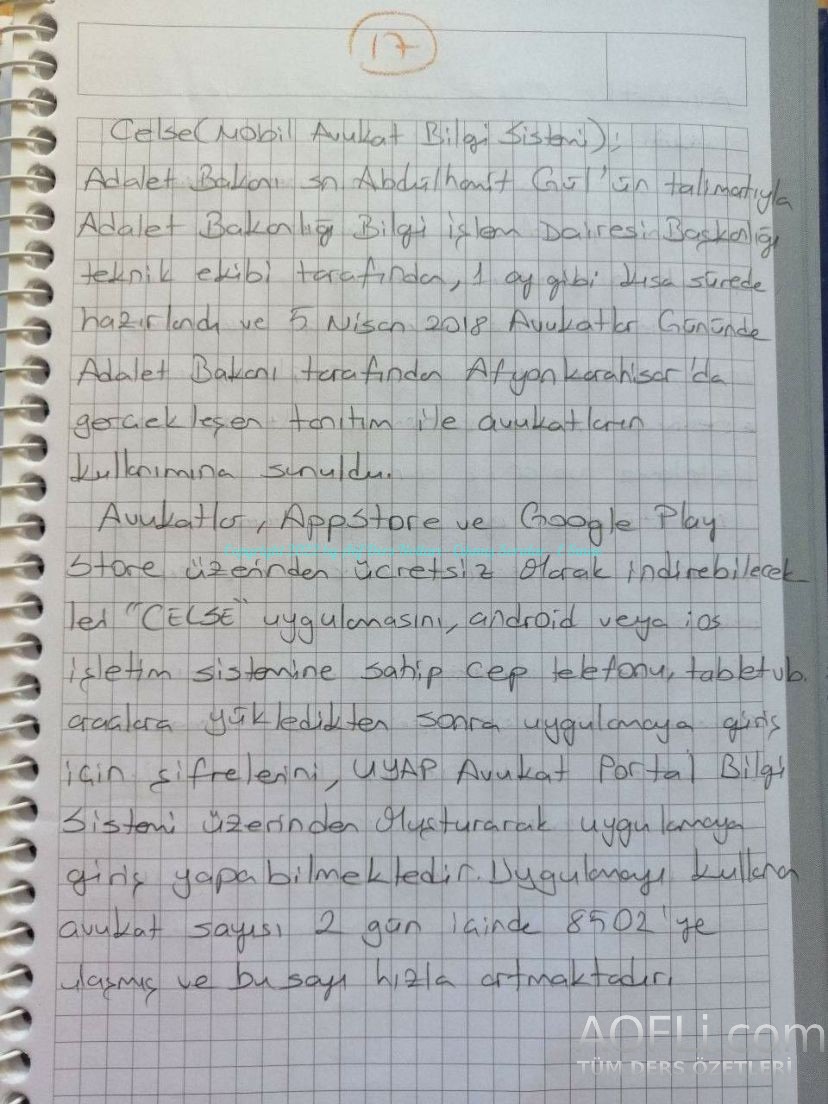 17
Celse (Mobil Avukat Bilgi Sistemi);
Adalet Bakanı sn Abdülhamit Gül'ün talimatıyla
Adalet Bakanlığı Bilgi işlem Dairesi Başkanlığı
teknik ekibi tarafından, 1 ay gibi kısa sürede
hazırlandı ve 5 Nisan 2018 Avukatlar Gününde
Adalet Bakanı tarafından Afyonkarahisar'da
gerçekleşen tanıtım ile avukatların
kullanımına sunuldu.
Avukatlar, AppStore ve Google Play
Store üzerinden ücretsiz olarak indirebilecek
leri "CELSE" uygulamasını, android veya ios
işletim sistemine sahip cep telefonu, tablet vb.
araçlara yükledikten sonra uygulamaya giriş
için şifrelerini, UYAP Avukat Portal Bilgi
Sistemi üzerinden oluşturarak uygulamaya
giriş yapabilmektedir. Uygulamayı kullanan
avukat sayısı 2 gün içinde 8502'ye
ulaşmış ve bu sayı hızla artmaktadır.
AOFLi.com
TÜM DERS ÖZETLERİ